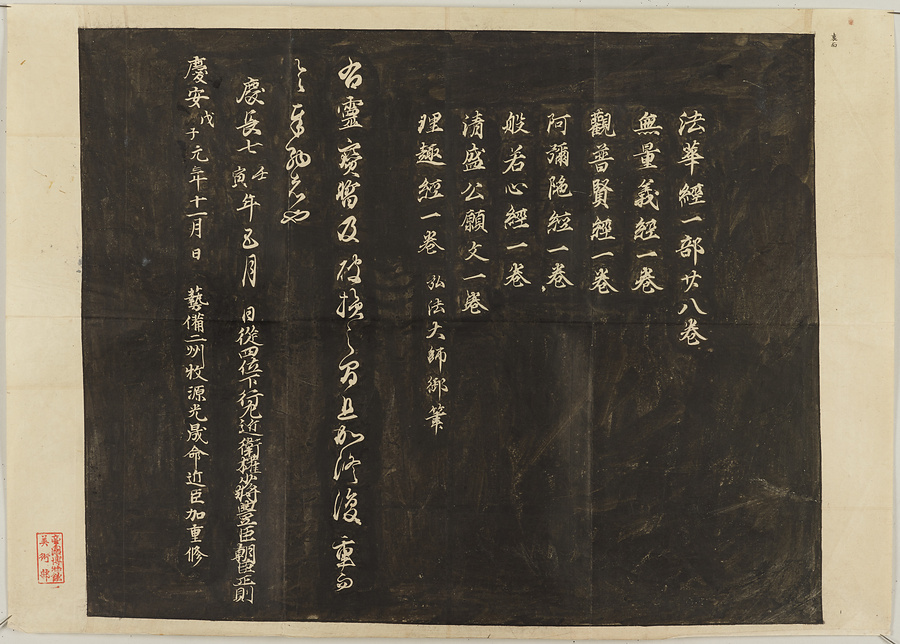 法華經一部廿八卷
無量義經一卷
觀普賢經一卷
阿彌陁經一卷
般若心經一卷
清盛公願文一卷
理趣經一卷 弘法大師御筆
右靈寶暫及破損之間且加修復重而
奉納者也
慶長七壬寅年五月 日從四位下行左近衛權少將豐臣朝臣正則
慶安戊子元年十一月日 藝備二州牧源光晟命近臣加重修